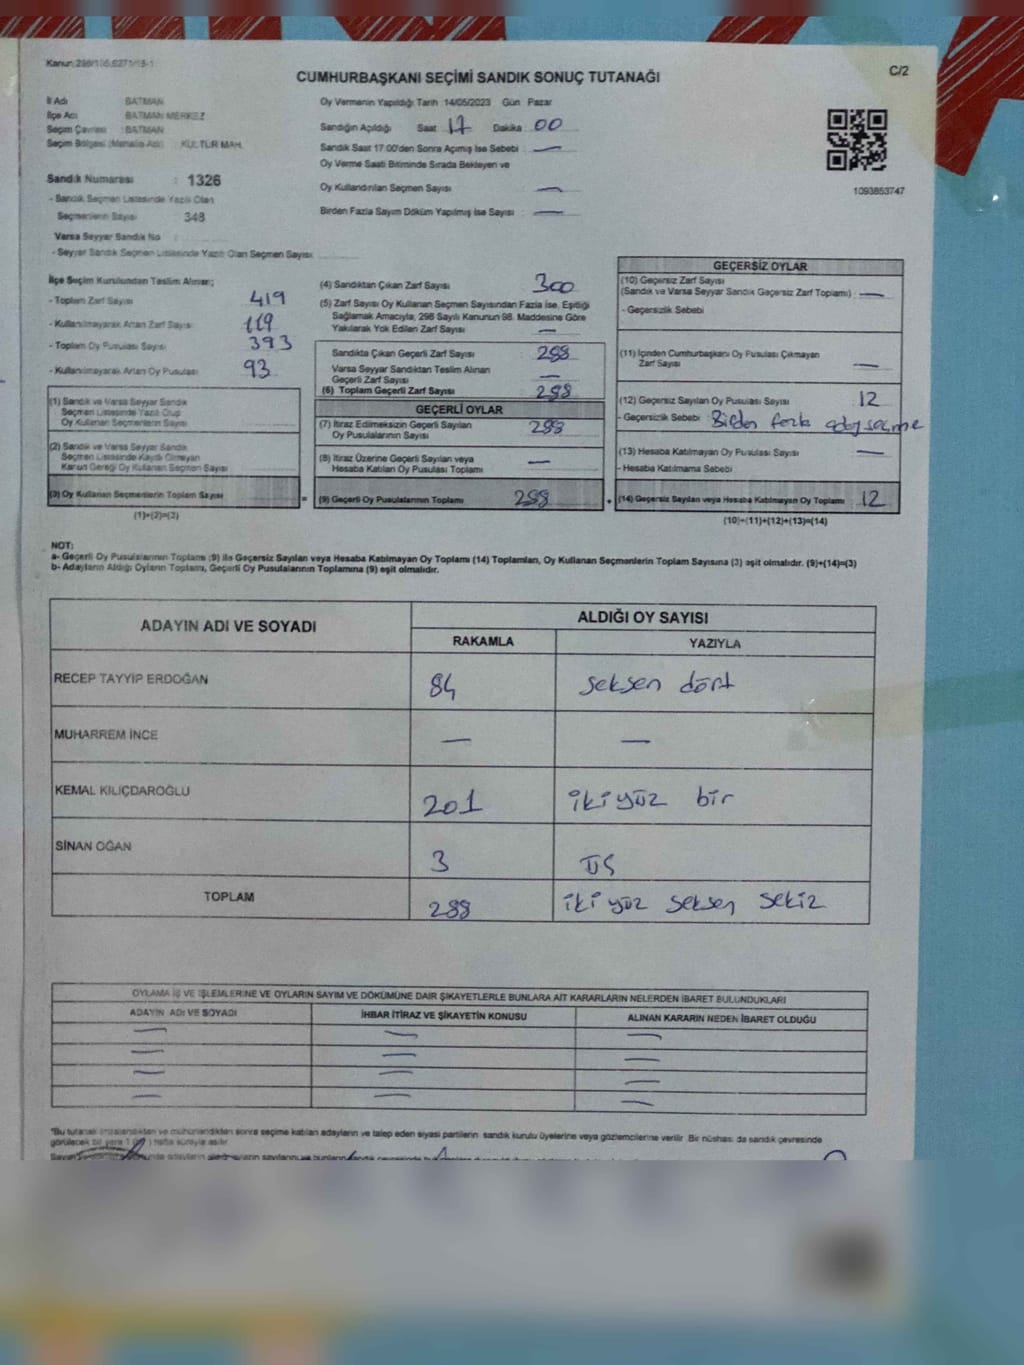 Kanun: 298/105,6271/18-1
CUMHURBAŞKANI SEÇİMİ SANDIK SONUÇ TUTANAĞI
C/2
İl Adı BATMAN
İlçe Adı BATMAN MERKEZ
Seçim Çevresi : BATMAN
Seçim Bölgesi (Mahalle Adı) : KÜLTÜR MAH.
Oy Vermenin Yapıldığı Tarih 14/05/2023 Gün Pazar
Sandığın Açıldığı Saat 17 Dakika 00
Sandık Saat 17:00'den Sonra Açılmış İse Sebebi : —
Oy Verme Saati Bitiminde Sırada Bekleyen ve
Oy Kullandırılan Seçmen Sayısı —
Birden Fazla Sayım Döküm Yapılmış İse Sayısı : —
1093853747
Sandık Numarası : 1326
- Sandık Seçmen Listesinde Yazılı Olan
Seçmenlerin Sayısı 348
Varsa Seyyar Sandık No :
- Seyyar Sandık Seçmen Listesinde Yazılı Olan Seçmen Sayısı:
İlçe Seçim Kurulundan Teslim Alınan;
- Toplam Zarf Sayısı 419
- Kullanılmayarak Artan Zarf Sayısı 119
- Toplam Oy Pusulası Sayısı 393
- Kullanılmayarak Artan Oy Pusulası 93
(1) Sandık ve Varsa Seyyar Sandık
Seçmen Listesinde Yazılı Olup
Oy Kullanan Seçmenlerin Sayısı
(2) Sandık ve Varsa Seyyar Sandık
Seçmen Listesinde Kayıtlı Olmayan
Kanun Gereği Oy Kullanan Seçmen Sayısı
(3) Oy Kullanan Seçmenlerin Toplam Sayısı
(1)+(2)=(3)
=
(4) Sandıktan Çıkan Zarf Sayısı 300
(5) Zarf Sayısı Oy Kullanan Seçmen Sayısından Fazla İse, Eşitliği
Sağlamak Amacıyla; 298 Sayılı Kanunun 98. Maddesine Göre
Yakılarak Yok Edilen Zarf Sayısı —
Sandıkta Çıkan Geçerli Zarf Sayısı 288
Varsa Seyyar Sandıktan Teslim Alınan
Geçerli Zarf Sayısı —
(6) Toplam Geçerli Zarf Sayısı 288
GEÇERLİ OYLAR
(7) İtiraz Edilmeksizin Geçerli Sayılan
Oy Pusulalarının Sayısı 288
(8) İtiraz Üzerine Geçerli Sayılan veya
Hesaba Katılan Oy Pusulası Toplamı —
(9) Geçerli Oy Pusulalarının Toplamı 288
+
GEÇERSİZ OYLAR
(10) Geçersiz Zarf Sayısı
(Sandık ve Varsa Seyyar Sandık Geçersiz Zarf Toplamı) : —
- Geçersizlik Sebebi
(11) İçinden Cumhurbaşkanı Oy Pusulası Çıkmayan
Zarf Sayısı —
(12) Geçersiz Sayılan Oy Pusulası Sayısı 12
- Geçersizlik Sebebi : Birden fazla aday seçme
(13) Hesaba Katılmayan Oy Pusulası Sayısı —
- Hesaba Katılmama Sebebi
(14) Geçersiz Sayılan veya Hesaba Katılmayan Oy Toplamı 12
(10)+(11)+(12)+(13)=(14)
NOT:
a- Geçerli Oy Pusulalarının Toplamı (9) ile Geçersiz Sayılan veya Hesaba Katılmayan Oy Toplamı (14) Toplamları, Oy Kullanan Seçmenlerin Toplam Sayısına (3) eşit olmalıdır. (9)+(14)=(3)
b- Adayların Aldığı Oyların Toplamı, Geçerli Oy Pusulalarının Toplamına (9) eşit olmalıdır.
ADAYIN ADI VE SOYADI
ALDIĞI OY SAYISI
RAKAMLA YAZIYLA
RECEP TAYYİP ERDOĞAN 84 seksen dört
MUHARREM İNCE — —
KEMAL KILIÇDAROĞLU 201 iki yüz bir
SİNAN OĞAN 3 üç
TOPLAM 288 iki yüz seksen sekiz
OYLAMA İŞ VE İŞLEMLERİNE VE OYLARIN SAYIM VE DÖKÜMÜNE DAİR ŞİKAYETLERLE BUNLARA AİT KARARLARIN NELERDEN İBARET BULUNDUKLARI
ADAYIN ADI VE SOYADI İHBAR İTİRAZ VE ŞİKAYETİN KONUSU ALINAN KARARIN NEDEN İBARET OLDUĞU
— — —
— — —
— — —
— — —
*Bu tutanak imzalandıktan ve mühürlendikten sonra seçime katılan adayların ve talep eden siyasi partilerin sandık kurulu üyelerine veya gözlemcilerine verilir. Bir nüshası da sandık çevresinde
görülecek bir yere 1 hafta süreyle asılır.